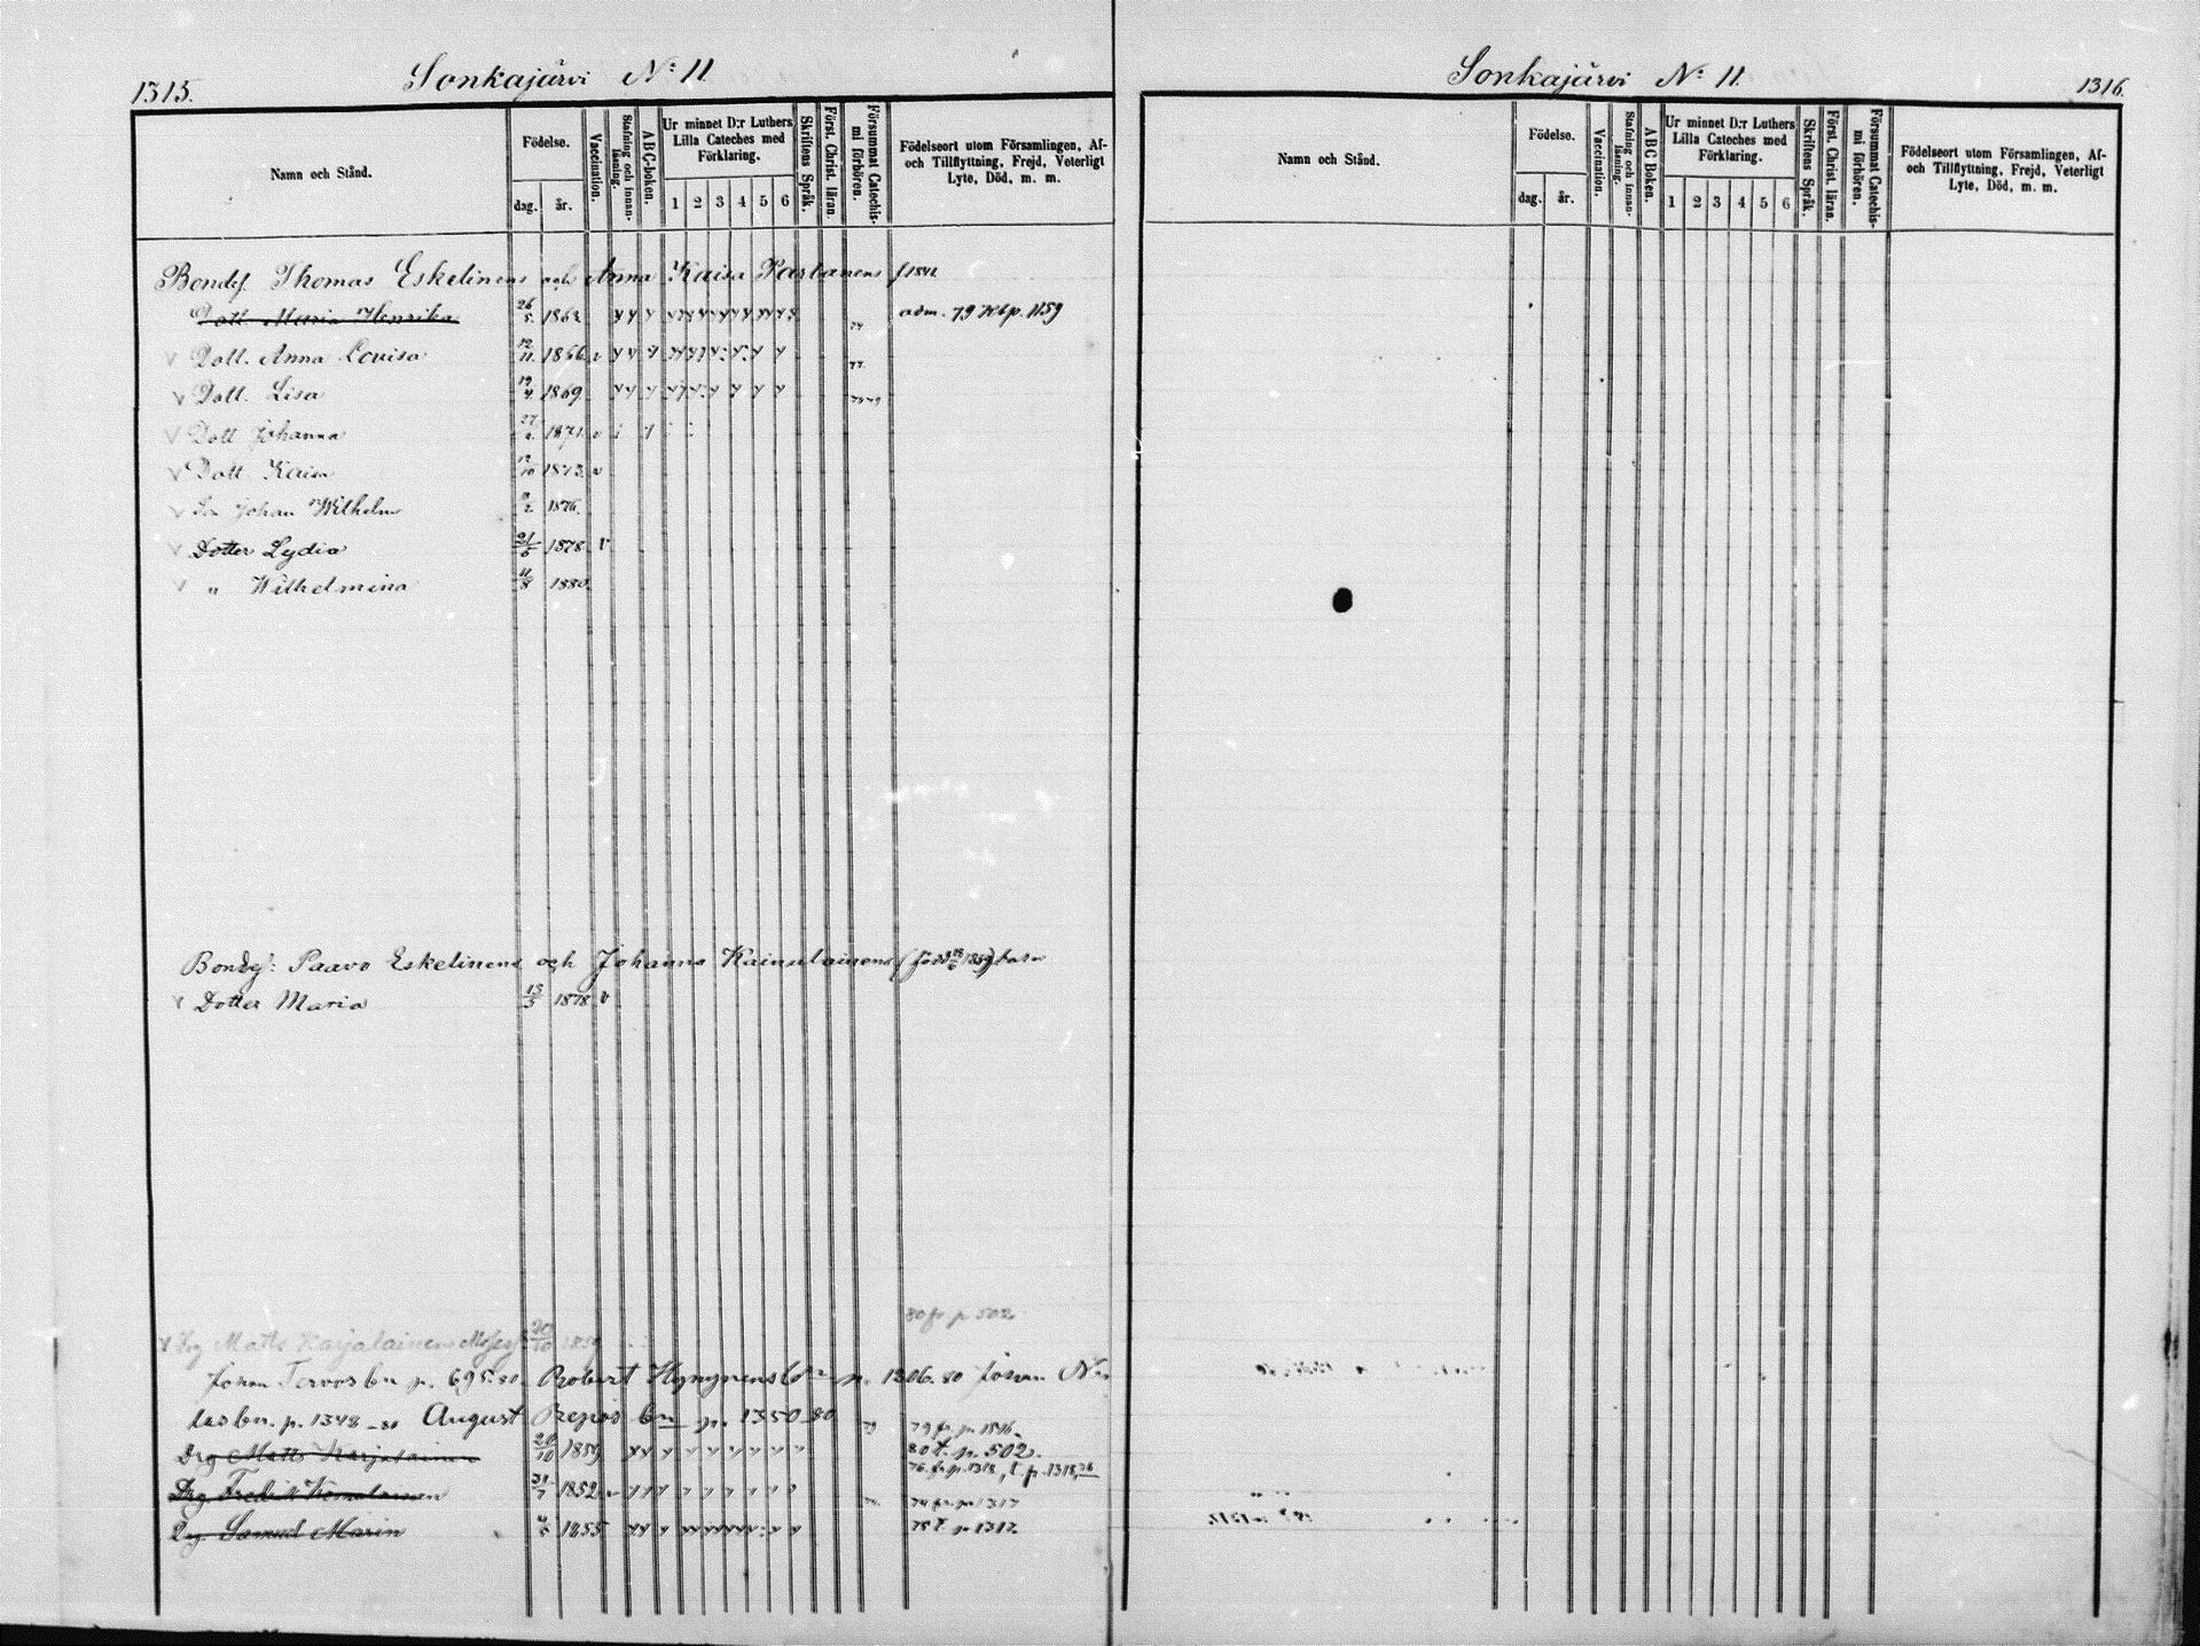 1315.
Sonkajärvi No 11
Namn och Stånd.
Födelse.
dag.
år.
Vaccination.
Stafning och innanläsning.
ABC-boken.
Ur minnet D:r Luthers Lilla Cateches med Förklaring.
1 2 3 4 5 6
Skriftens Språk.
Först. Christ. läran.
Försummat Catechismi förhören.
Födelseort utom Församlingen, Af- och Tillflyttning, Frejd, Veterligt Lyte, Död, m. m.
Bondes. Thomas Eskelinens och Anna Kaisa Partanens f. 1842
Dott. Maria Henrika 26/5 1863 adm. 79 Kbp. 1159
v Dott. Anna Lovisa 12/11 1866 v 77
v Dott. Lisa 19/4 1869
v Dott Johanna 1871 v
v Dott Kaisa 12/10 1873 v
v Son Johan Wilhelm 1876
v Dotter Lydia 21/5 1878 v
v " Wilhelmina 11/8 1880.
Bondes: Paavo Eskelinens och Johanna Kainulainens (född 1859) barn
v Dotter Maria 13/3 1878 v
80 fr p 502
v Drg Matts Karjalainen 20/10 1859
Johan Tervos bn p. 695.80. Robert Hynynens p. 1206.80 Johan
bn. p. 1348-80 August Repos bn p. 1350 80
79 fr. p. 1546.
Drg Matts Karjalainen 20/10 1859 80 t. p. 502.
76. fr. p. 1318, t. p. 1318, 76
Drg. Fredrik Komulainen 31/7 1852 v
74 fr. p. 1317
Drg. Samuel Marin 1855 75 t. p. 1317
Sonkajärvi No 11.
1316.
Namn och Stånd.
Födelse.
dag.
år.
Vaccination.
Stafning och innanläsning.
ABC Boken.
Ur minnet D:r Luthers Lilla Cateches med Förklaring.
1 2 3 4 5 6
Skriftens Språk.
Först. Christ. läran.
Försummat Catechismi förhören.
Födelseort utom Församlingen, Af- och Tillflyttning, Frejd, Veterligt Lyte, Död, m. m.